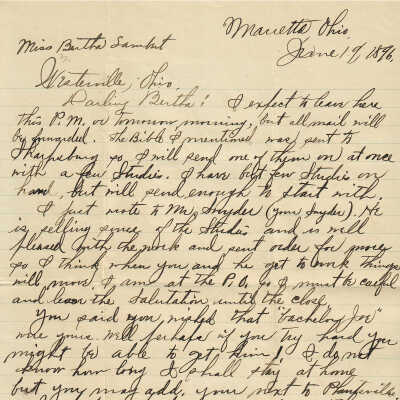 Marietta, Ohio,
June 19, 1896.
Miss Bertha Lambert
Westerville, Ohio,
Darling Bertha: I expect to leave here
this P.M. or tomorrow morning, but all mail will
be forwarded. The Bible I mentioned was sent to
Sharpsburg so, I will send one of them on at once
with a few Studies. I have but few Studies on
hand, but will send enough to start with.
I just wrote to Mr. Snyder (your Snyder). He
is selling some of the Studies and is well
pleased with the work and sent order for more
so I think when you and he get to work things
will move. I am at the P.O. so I must be careful
and leave the salutation until the close.
You said you wished that "bachelor Joe"
were yours. Well perhaps if you try hard you
might be able to get him! I do not
know how long I shall stay at home
but you may add, your next to Plantsville,